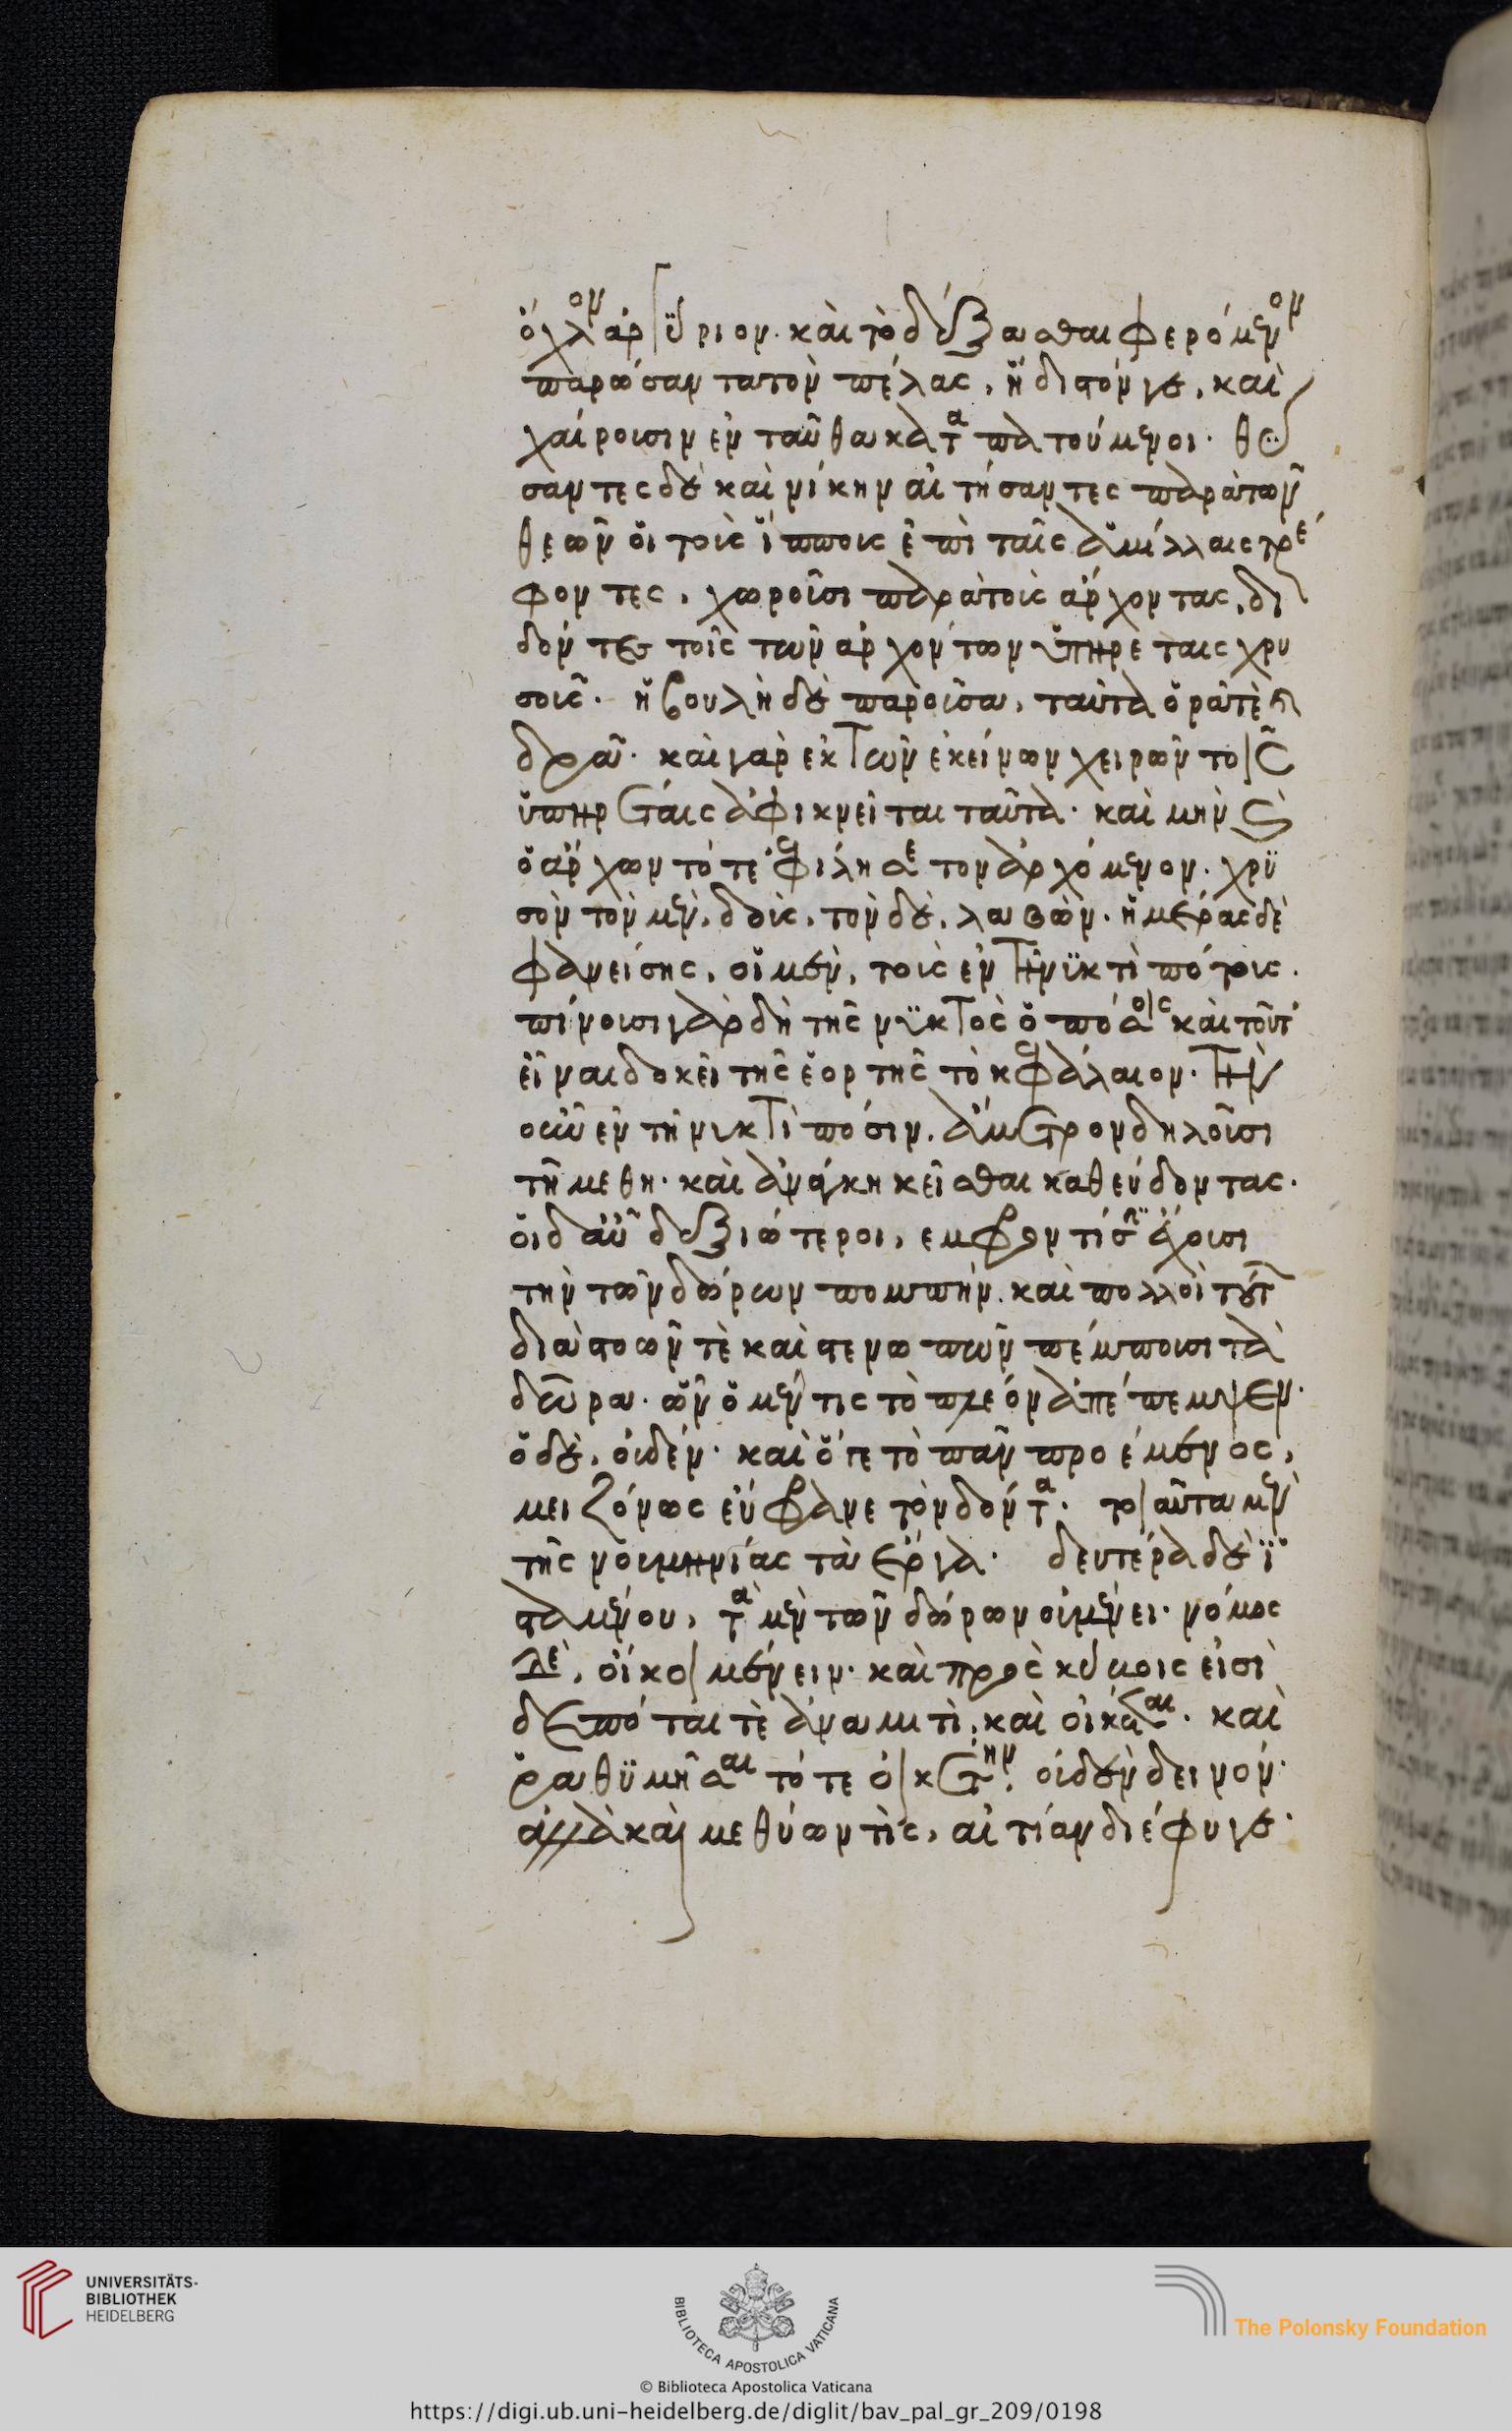 ὄχλον ἀργύριον. καὶ τὸ δέξασθαι φερόμενον
παρώσαντα τὸν πέλας, ἥδιστόν γε, καὶ
χαίρουσιν ἐνταῦθα καταπατούμενοι. θύ
σαντες δὲ καὶ νίκην αἰτήσαντες παρὰ τῶν
θεῶν οἱ τοὺς ἵππους ἐπὶ ταῖς ἁμίλλαις τρέ
φοντες, χωροῦσι παρὰ τοὺς ἄρχοντας, δι
δόντες τοῖς τῶν ἀρχόντων ὑπηρέταις χρυ
σοῦς. ἡ βουλὴ δὲ παροῦσα, ταῦτα ὁρᾶ τὲ καὶ
δρᾶ. καὶ γὰρ ἐκ τῶν ἐκείνων χειρῶν τοῖς
ὑπηρέταις ἀφικνεῖται ταῦτα. καὶ μὴν καὶ
ὁ ἄρχων τότε ἐφίλησε τὸν ἀρχόμενον. χρυ
σὸν τὸν μὲν, δοὺς, τὸν δὲ, λαβών. ἡμέρας δὲ
φανείσης, οἱ μὲν, τοῖς ἐν τῆ νυκτὶ πότοις.
πίνουσι γὰρ δὴ τῆς νυκτὸς ὁπόσοις καὶ τοῦτ'
εἶναι δοκεῖ τῆς ἑορτῆς τὸ κεφάλαιον. τὴν
οὖν ἐν τῆ νυκτὶ πόσιν, ἄμετρον δηλοῦσι
τῆ μέθη. καὶ ἀνάγκη κεῖσθαι καθεύδοντας.
οἱ δ' αὖ δεξιώτεροι, ἐμφροντίσιν ἔχουσι
τὴν τῶν δώρων πομπήν. καὶ πολλοὶ τότε
διὰ στοῶν τὲ καὶ στενωπῶν πέμπουσι τὰ
δῶρα. ὧν ὁ μέν τις τὸ πλέον ἀπέπεμψεν.
ὁ δὲ, οὐδέν. καὶ ὅτε τὸ πᾶν προέμενος,
μειζόνως εὔφρανε τὸν δόντα. τοιαῦτα μὲν
τῆς νουμηνίας τὰ ἔργα. δευτέρα δὲ ἱ
σταμένου, τὰ μὲν τῶν δώρων οὐ μένει. νόμος
δὲ, οἴκοι μένειν. καὶ πρὸς κύβοις εἰσὶ
δεσπόται τὲ ἀναμὶ τὶ, καὶ οἰκέται. καὶ
ῥαθυμῆσαι τότε οἰκέτην, οὐδὲν δεινόν.
ἀλλὰ καὶ μεθύων τὶς, αἰτίαν διέφυγε.
UNIVERSITÄTS-
BIBLIOTHEK
HEIDELBERG
BIBLIOTECA APOSTOLICA VATICANA
The Polonsky Foundation
© Biblioteca Apostolica Vaticana
https://digi.ub.uni-heidelberg.de/diglit/bav_pal_gr_209/0198